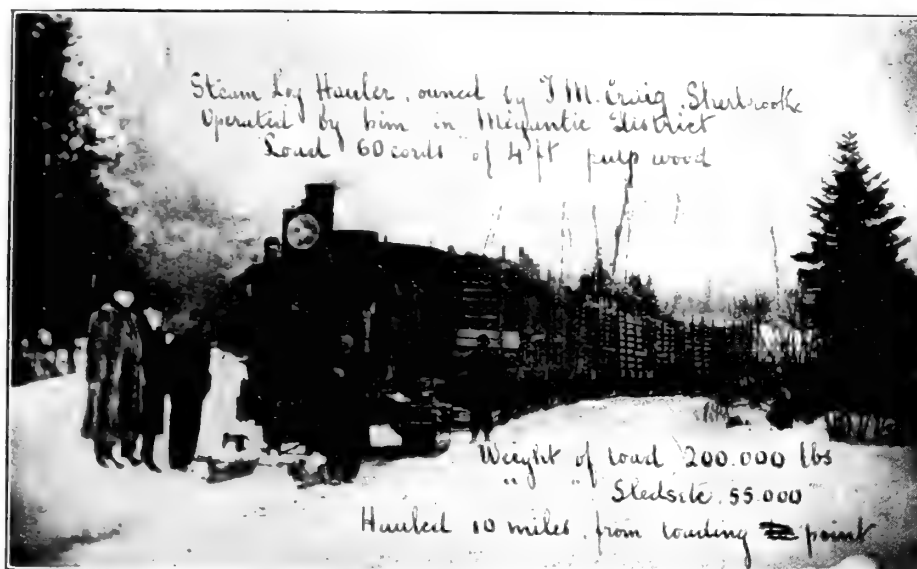 Steam Log Hauler. owned by T M. Craig. Sherbrooke
Operated by him in Megantic District
Load 60 cords of 4 ft pulp wood
Weight of load 200.000 lbs
" " Sledsite. 55.000 "
Hauled 10 miles. from loading point